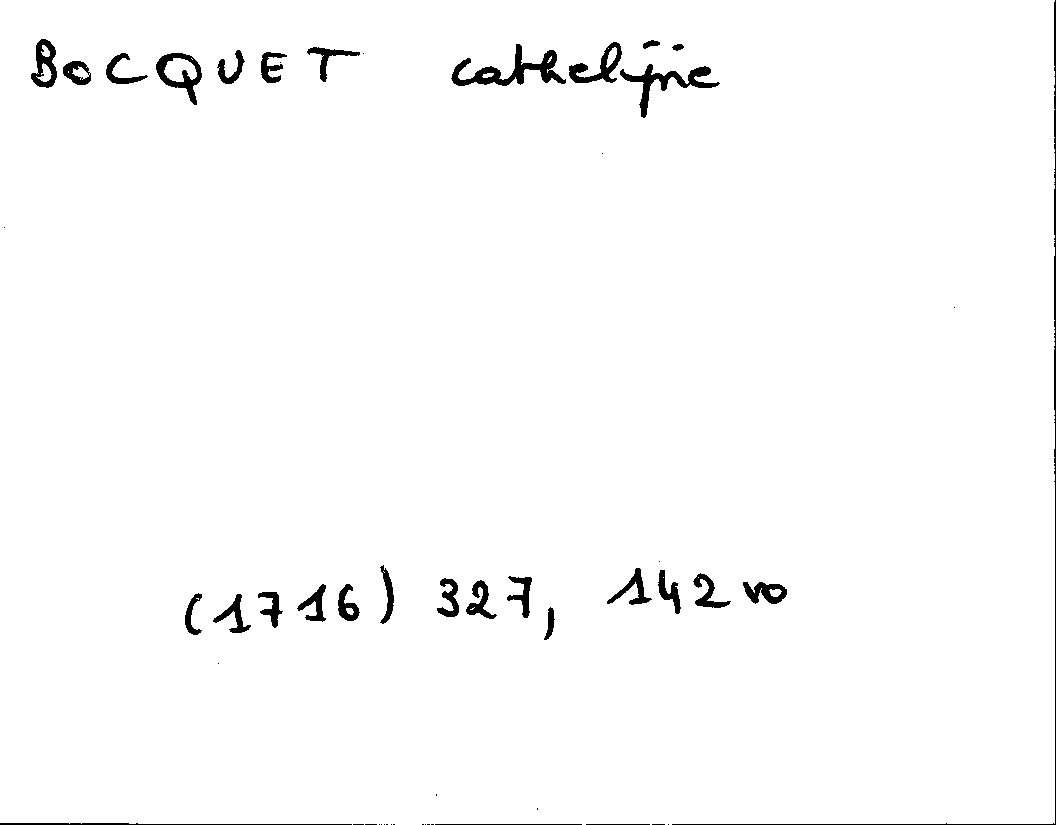 BOCQUET cathelijne
(1716) 327, 142 vo